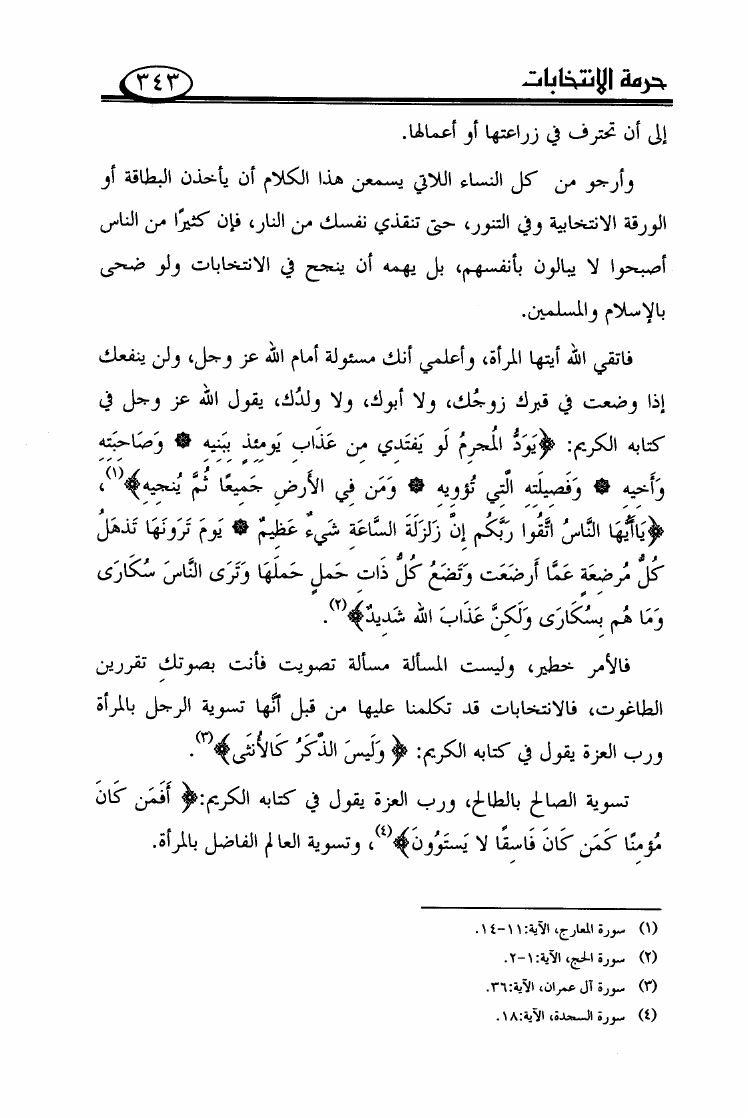 حرمة الانتخابات ٣٤٣
إلى أن تحترف في زراعتها أو أعمالها.
وأرجو من كل النساء اللاتي يسمعن هذا الكلام أن يأخذن البطاقة أو
الورقة الانتخابية وفي التنور، حتى تنقذي نفسك من النار، فإن كثيرًا من الناس
أصبحوا لا يبالون بأنفسهم، بل يهمه أن ينجح في الانتخابات ولو ضحى
بالإسلام والمسلمين.
فاتقي الله أيتها المرأة، وأعلمي أنك مسئولة أمام الله عز وجل، ولن ينفعك
إذا وضعت في قبرك زوجُك، ولا أبوك، ولا ولدُك، يقول الله عز وجل في
كتابه الكريم: ﴿يَوَدُّ المُجرِمُ لَو يَفتَدِي مِن عَذَابِ يَومِئِذٍ بِبَنِيهِ * وَصَاحِبَتِهِ
وَأَخِيهِ * وَفَصِيلَتِهِ الَّتِي تُؤوِيهِ * وَمَن فِي الأَرضِ جَمِيعًا ثُمَّ يُنجِيهِ﴾(١)،
﴿يَاأَيُّهَا النَّاسُ اتَّقُوا رَبَّكُم إِنَّ زَلزَلَةَ السَّاعَةِ شَيءٌ عَظِيمٌ * يَومَ تَرَونَهَا تَذهَلُ
كُلُّ مُرضِعَةٍ عَمَّا أَرضَعَت وَتَضَعُ كُلُّ ذَاتِ حَملٍ حَملَهَا وَتَرَى النَّاسَ سُكَارَى
وَمَا هُم بِسُكَارَى وَلَكِنَّ عَذَابَ الله شَدِيدٌ﴾(٢).
فالأمر خطير، وليست المسألة مسألة تصويت فأنت بصوتكِ تقررين
الطاغوت، فالانتخابات قد تكلمنا عليها من قبل أنَّها تسوية الرجل بالمرأة
ورب العزة يقول في كتابه الكريم: ﴿ وَلَيسَ الذَّكَرُ كَالأُنثَى﴾(٣).
تسوية الصالح بالطالح، ورب العزة يقول في كتابه الكريم:﴿ أَفَمَن كَانَ
مُؤمِنًا كَمَن كَانَ فَاسِقًا لا يَستَوُونَ﴾(٤)، وتسوية العالم الفاضل بالمرأة.
(١) سورة المعارج، الآية:١١-١٤.
(٢) سورة الحج، الآية:١-٢.
(٣) سورة آل عمران، الآية:٣٦.
(٤) سورة السجدة، الآية:١٨.